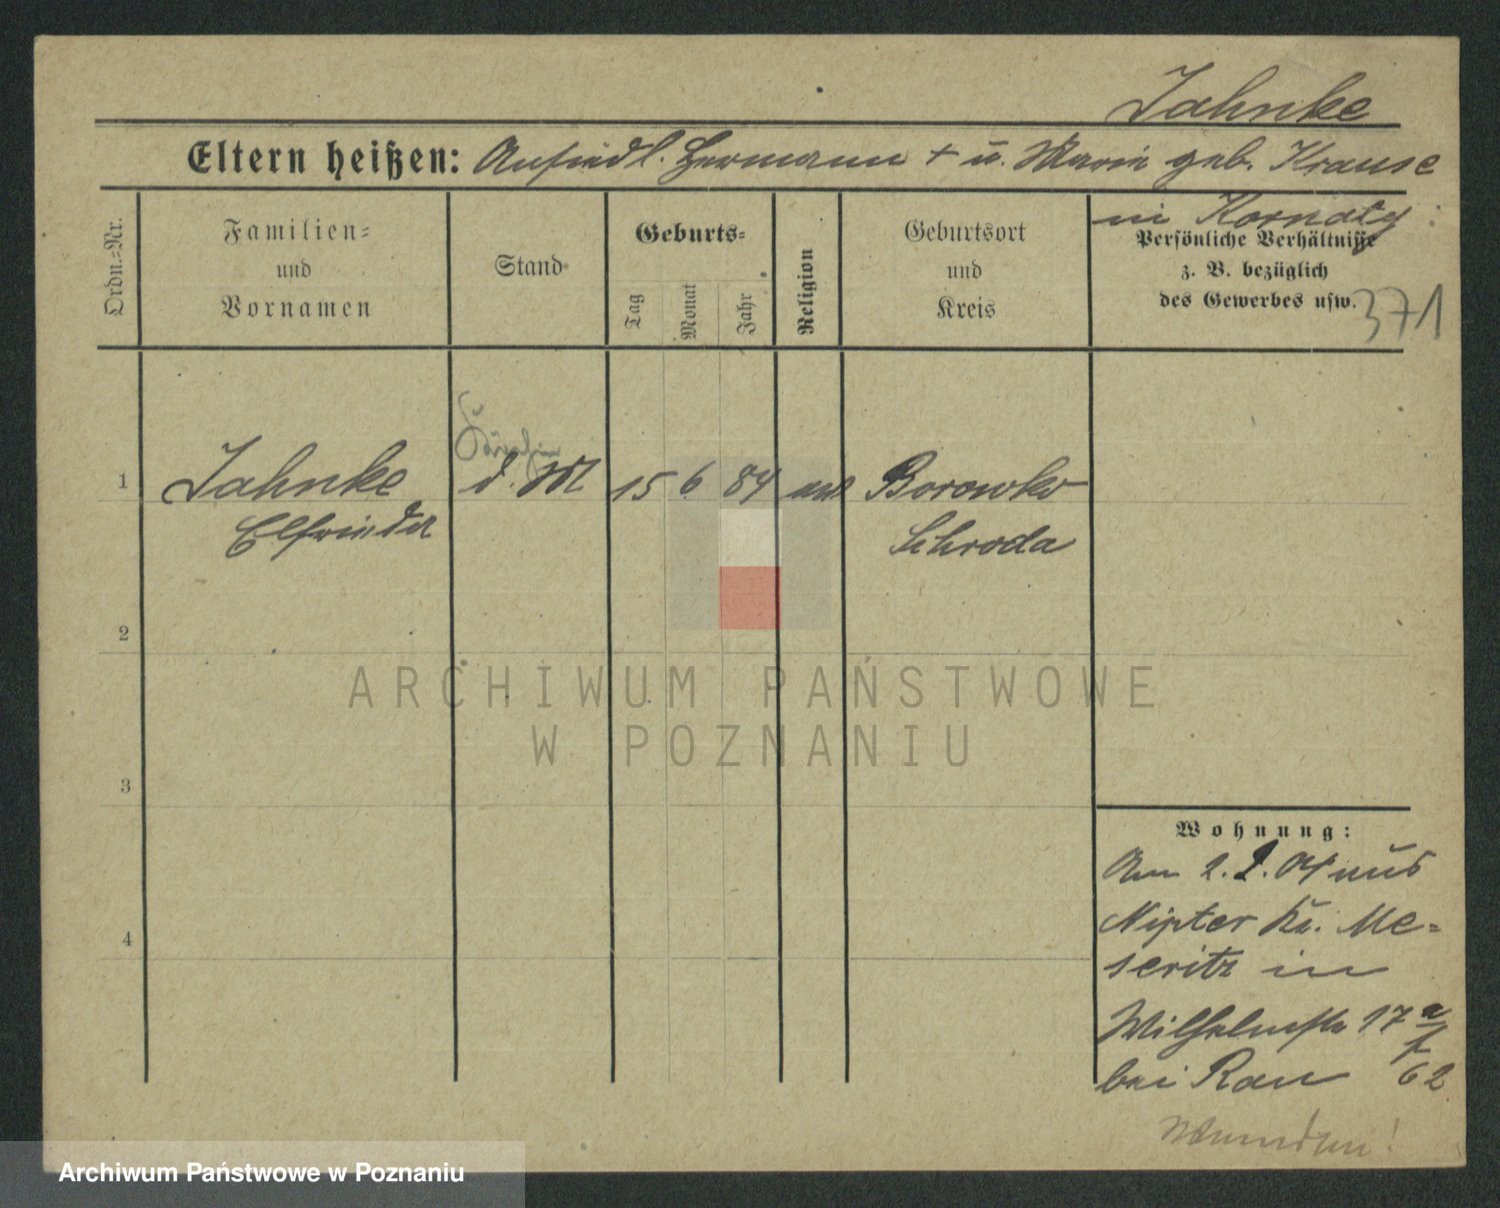 Jahnke
Eltern heißen: Ansiedl. Hermann + u. Marie geb. Krause
in Kornaty
Ordn.-Nr.
Familien-
und
Vornamen
Stand
Geburts-
Tag
Monat
Jahr
Religion
Geburtsort
und
Kreis
Persönliche Verhältnisse
z. B. bezüglich
des Gewerbes usw.
371
1 Jahnke d. M 15 6 84 Borowko
Elfriede Schroda
2
3
4
Wohnung:
Am 2. 2. 04 aus
Nipter Kr. Me-
seritz in
Wilhelmstr 17
bei Rau 62
ARCHIWUM PAŃSTWOWE
W POZNANIU
Archiwum Państwowe w Poznaniu